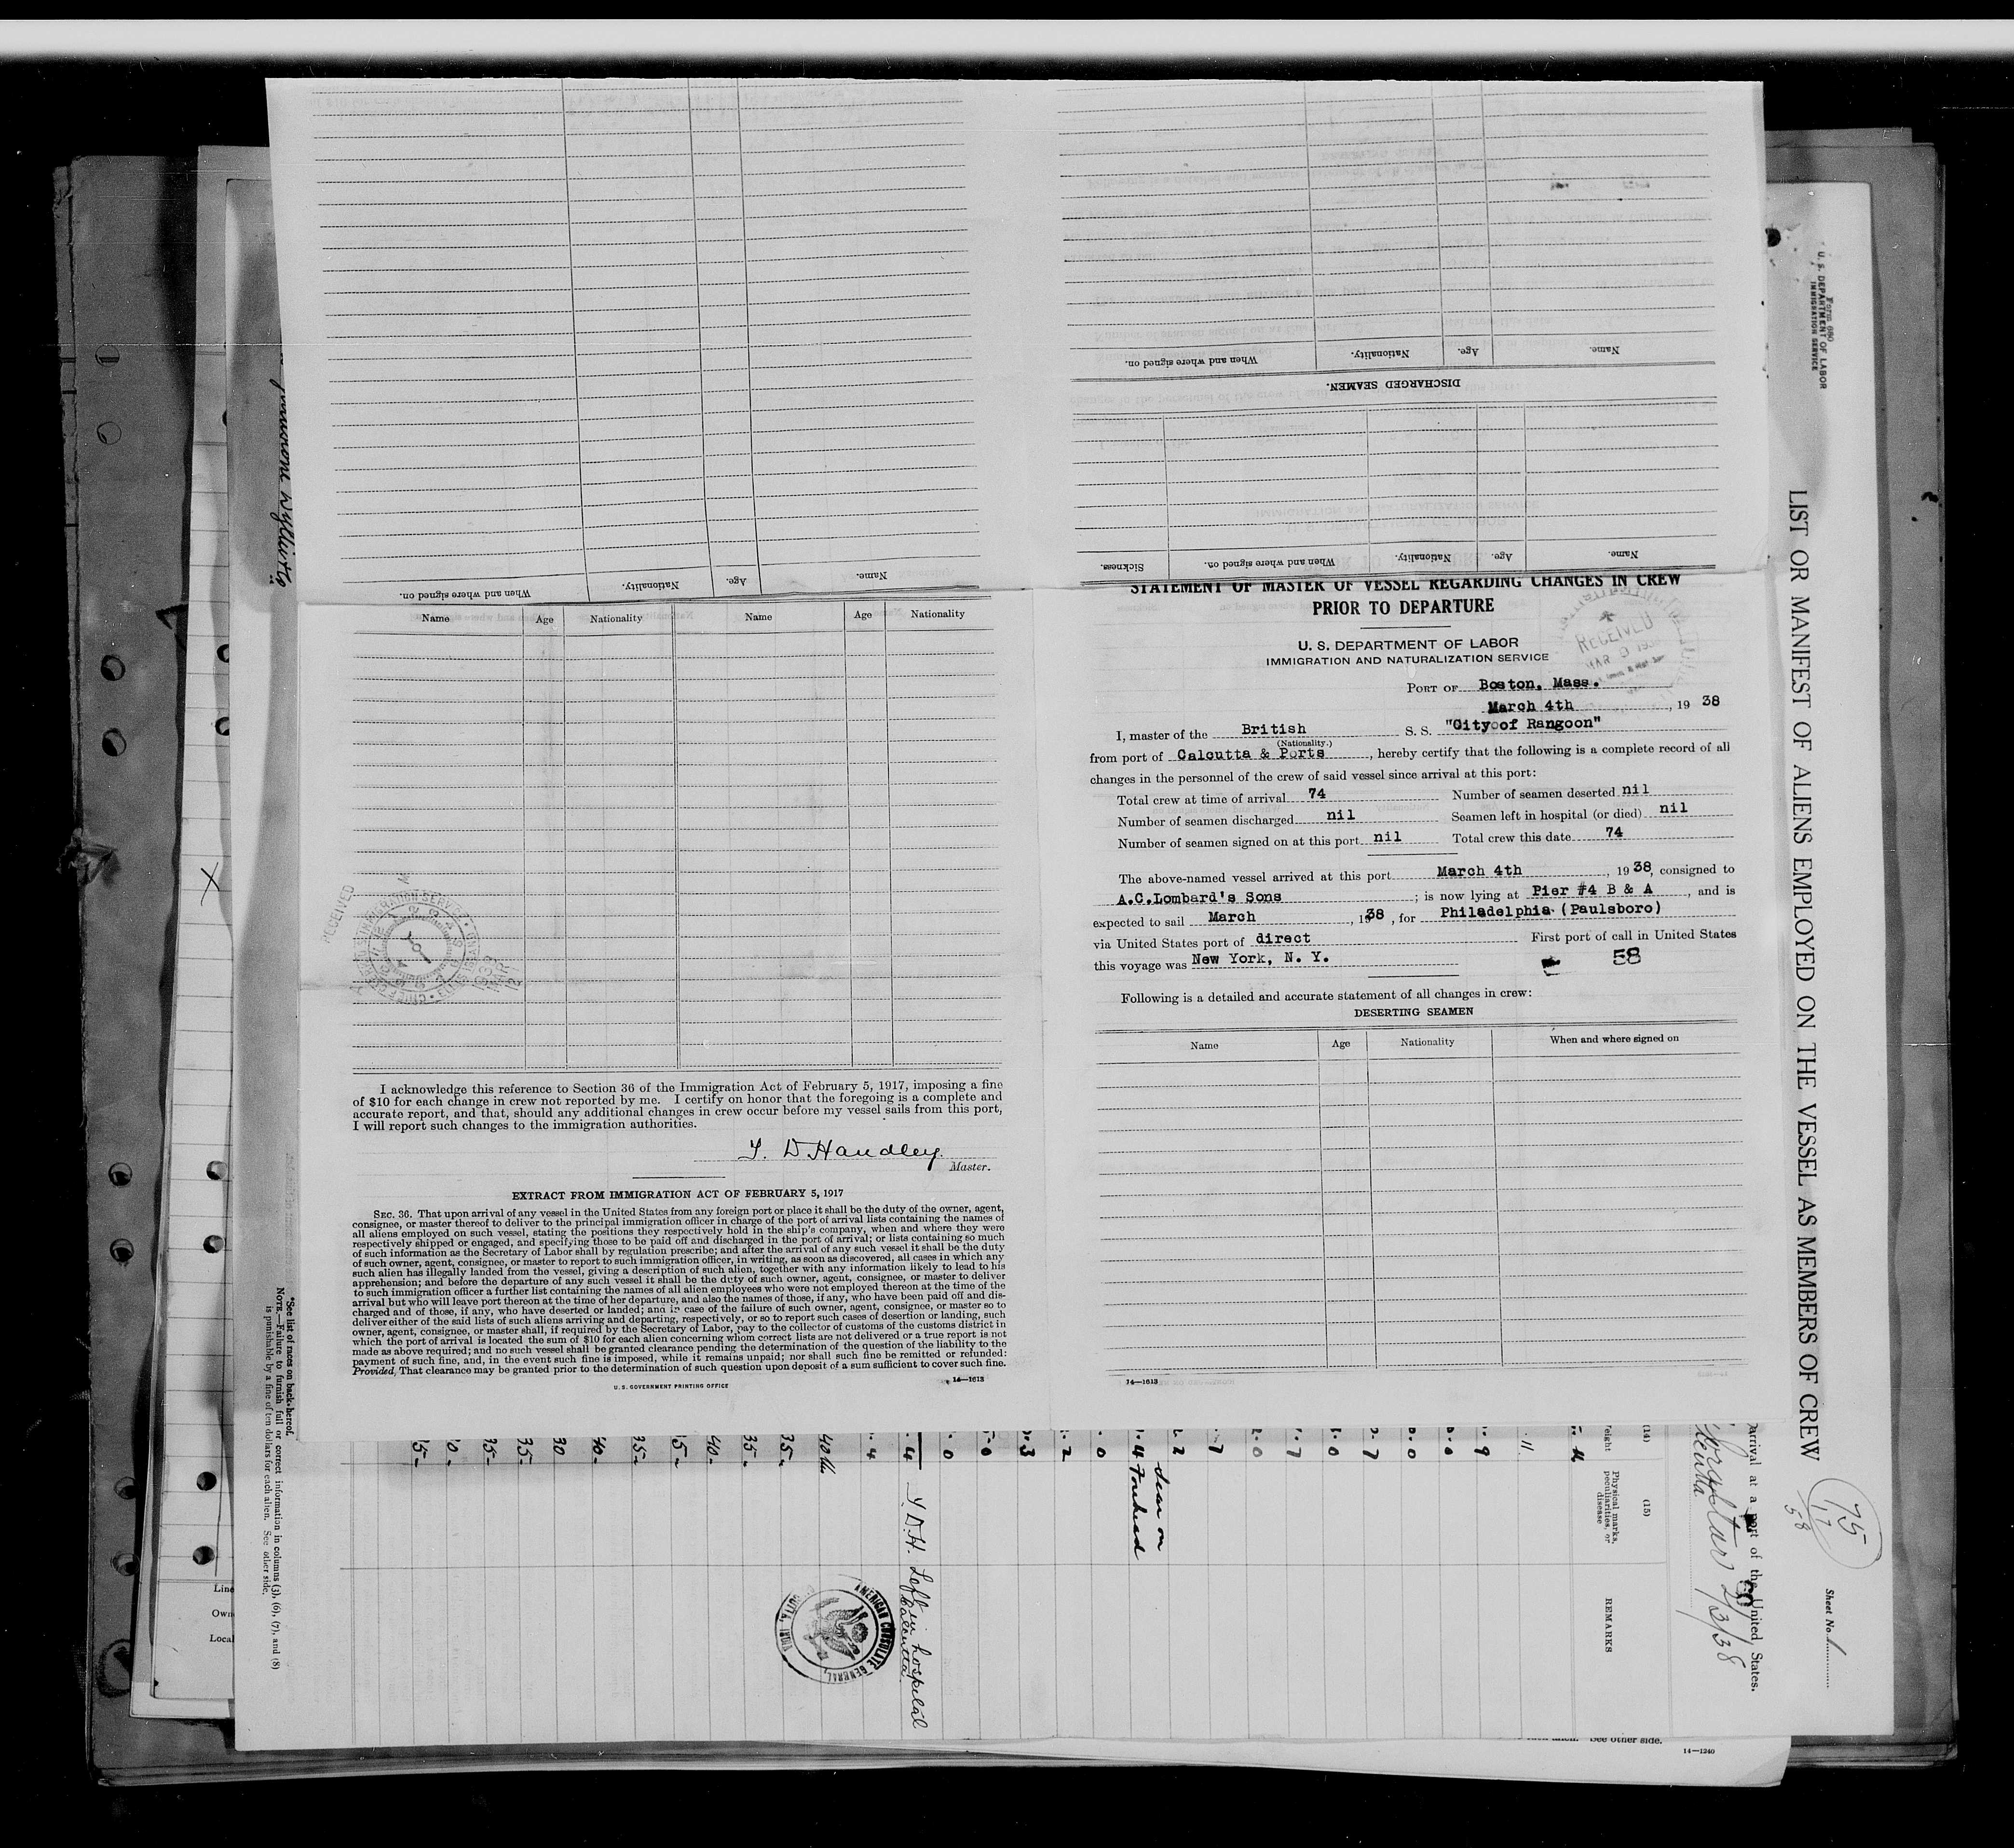 When and where signed on.
Nationality.
Age.
Name.
When and where signed on.
Nationality.
Age.
Name.
DISCHARGED SEAMEN.
Sickness.
When and where signed on.
Nationality.
Age.
Name.
Name
Age
Nationality
Name
Age
Nationality
RECEIVED
I acknowledge this reference to Section 36 of the Immigration Act of February 5, 1917, imposing a fine
of $10 for each change in crew not reported by me. I certify on honor that the foregoing is a complete and
accurate report, and that, should any additional changes in crew occur before my vessel sails from this port,
I will report such changes to the immigration authorities.
Y. D Handley.
Master.
EXTRACT FROM IMMIGRATION ACT OF FEBRUARY 5, 1917
SEC. 36. That upon arrival of any vessel in the United States from any foreign port or place it shall be the duty of the owner, agent,
consignee, or master thereof to deliver to the principal immigration officer in charge of the port of arrival lists containing the names of
all aliens employed on such vessel, stating the positions they respectively hold in the ship's company, when and where they were
respectively shipped or engaged, and specifying those to be paid off and discharged in the port of arrival; or lists containing so much
of such information as the Secretary of Labor shall by regulation prescribe; and after the arrival of any such vessel it shall be the duty
of such owner, agent, consignee, or master to report to such immigration officer, in writing, as soon as discovered, all cases in which any
such alien has illegally landed from the vessel, giving a description of such alien, together with any information likely to lead to his
apprehension; and before the departure of any such vessel it shall be the duty of such owner, agent, consignee, or master to deliver
to such immigration officer a further list containing the names of all alien employees who were not employed thereon at the time of the
arrival but who will leave port thereon at the time of her departure, and also the names of those, if any, who have been paid off and dis-
charged and of those, if any, who have deserted or landed; and in case of the failure of such owner, agent, consignee, or master so to
deliver either of the said lists of such aliens arriving and departing, respectively, or so to report such cases of desertion or landing, such
owner, agent, consignee, or master shall, if required by the Secretary of Labor, pay to the collector of customs of the customs district in
which the port of arrival is located the sum of $10 for each alien concerning whom correct lists are not delivered or a true report is not
made as above required; and no such vessel shall be granted clearance pending the determination of the question of the liability to the
payment of such fine, and, in the event such fine is imposed, while it remains unpaid; nor shall such fine be remitted or refunded:
Provided, That clearance may be granted prior to the determination of such question upon deposit of a sum sufficient to cover such fine.
U. S. GOVERNMENT PRINTING OFFICE
14—1613
STATEMENT OF MASTER OF VESSEL REGARDING CHANGES IN CREW
PRIOR TO DEPARTURE
U. S. DEPARTMENT OF LABOR
IMMIGRATION AND NATURALIZATION SERVICE
RECEIVED
MAR 9
PORT OF Boston, Mass.
March 4th, 19 38
I, master of the British S. S. "City of Rangoon"
(Nationality.)
from port of Calcutta & Ports, hereby certify that the following is a complete record of all
changes in the personnel of the crew of said vessel since arrival at this port:
Total crew at time of arrival 74 Number of seamen deserted nil
Number of seamen discharged nil Seamen left in hospital (or died) nil
Number of seamen signed on at this port nil Total crew this date 74
The above-named vessel arrived at this port March 4th, 19 38, consigned to
A.C.Lombard's Sons; is now lying at Pier #4 B & A, and is
expected to sail March, 1938, for Philadelphia (Paulsboro)
via United States port of direct First port of call in United States
this voyage was New York, N. Y.
58
Following is a detailed and accurate statement of all changes in crew:
DESERTING SEAMEN
Name
Age
Nationality
When and where signed on
14—1613
Form 680
U. S. DEPARTMENT OF LABOR
IMMIGRATION SERVICE
LIST OR MANIFEST OF ALIENS EMPLOYED ON THE VESSEL AS MEMBERS OF CREW
75
17
58
Sheet No. 1
arrival at a port of the United States.
2/3/38
(14)
(15)
Physical marks,
peculiarities, or
disease
REMARKS
Scar on
Forehead
Y. D.H. Left in hospital
Calcutta
AMERICAN CONSULATE GENERAL,
*See list of races on back hereof.
NOTE.—Failure to furnish full or correct information in columns (3), (6), (7), and (8)
is punishable by a fine of ten dollars for each alien. See other side.
Line
Own
Local
See other side.
14—1240